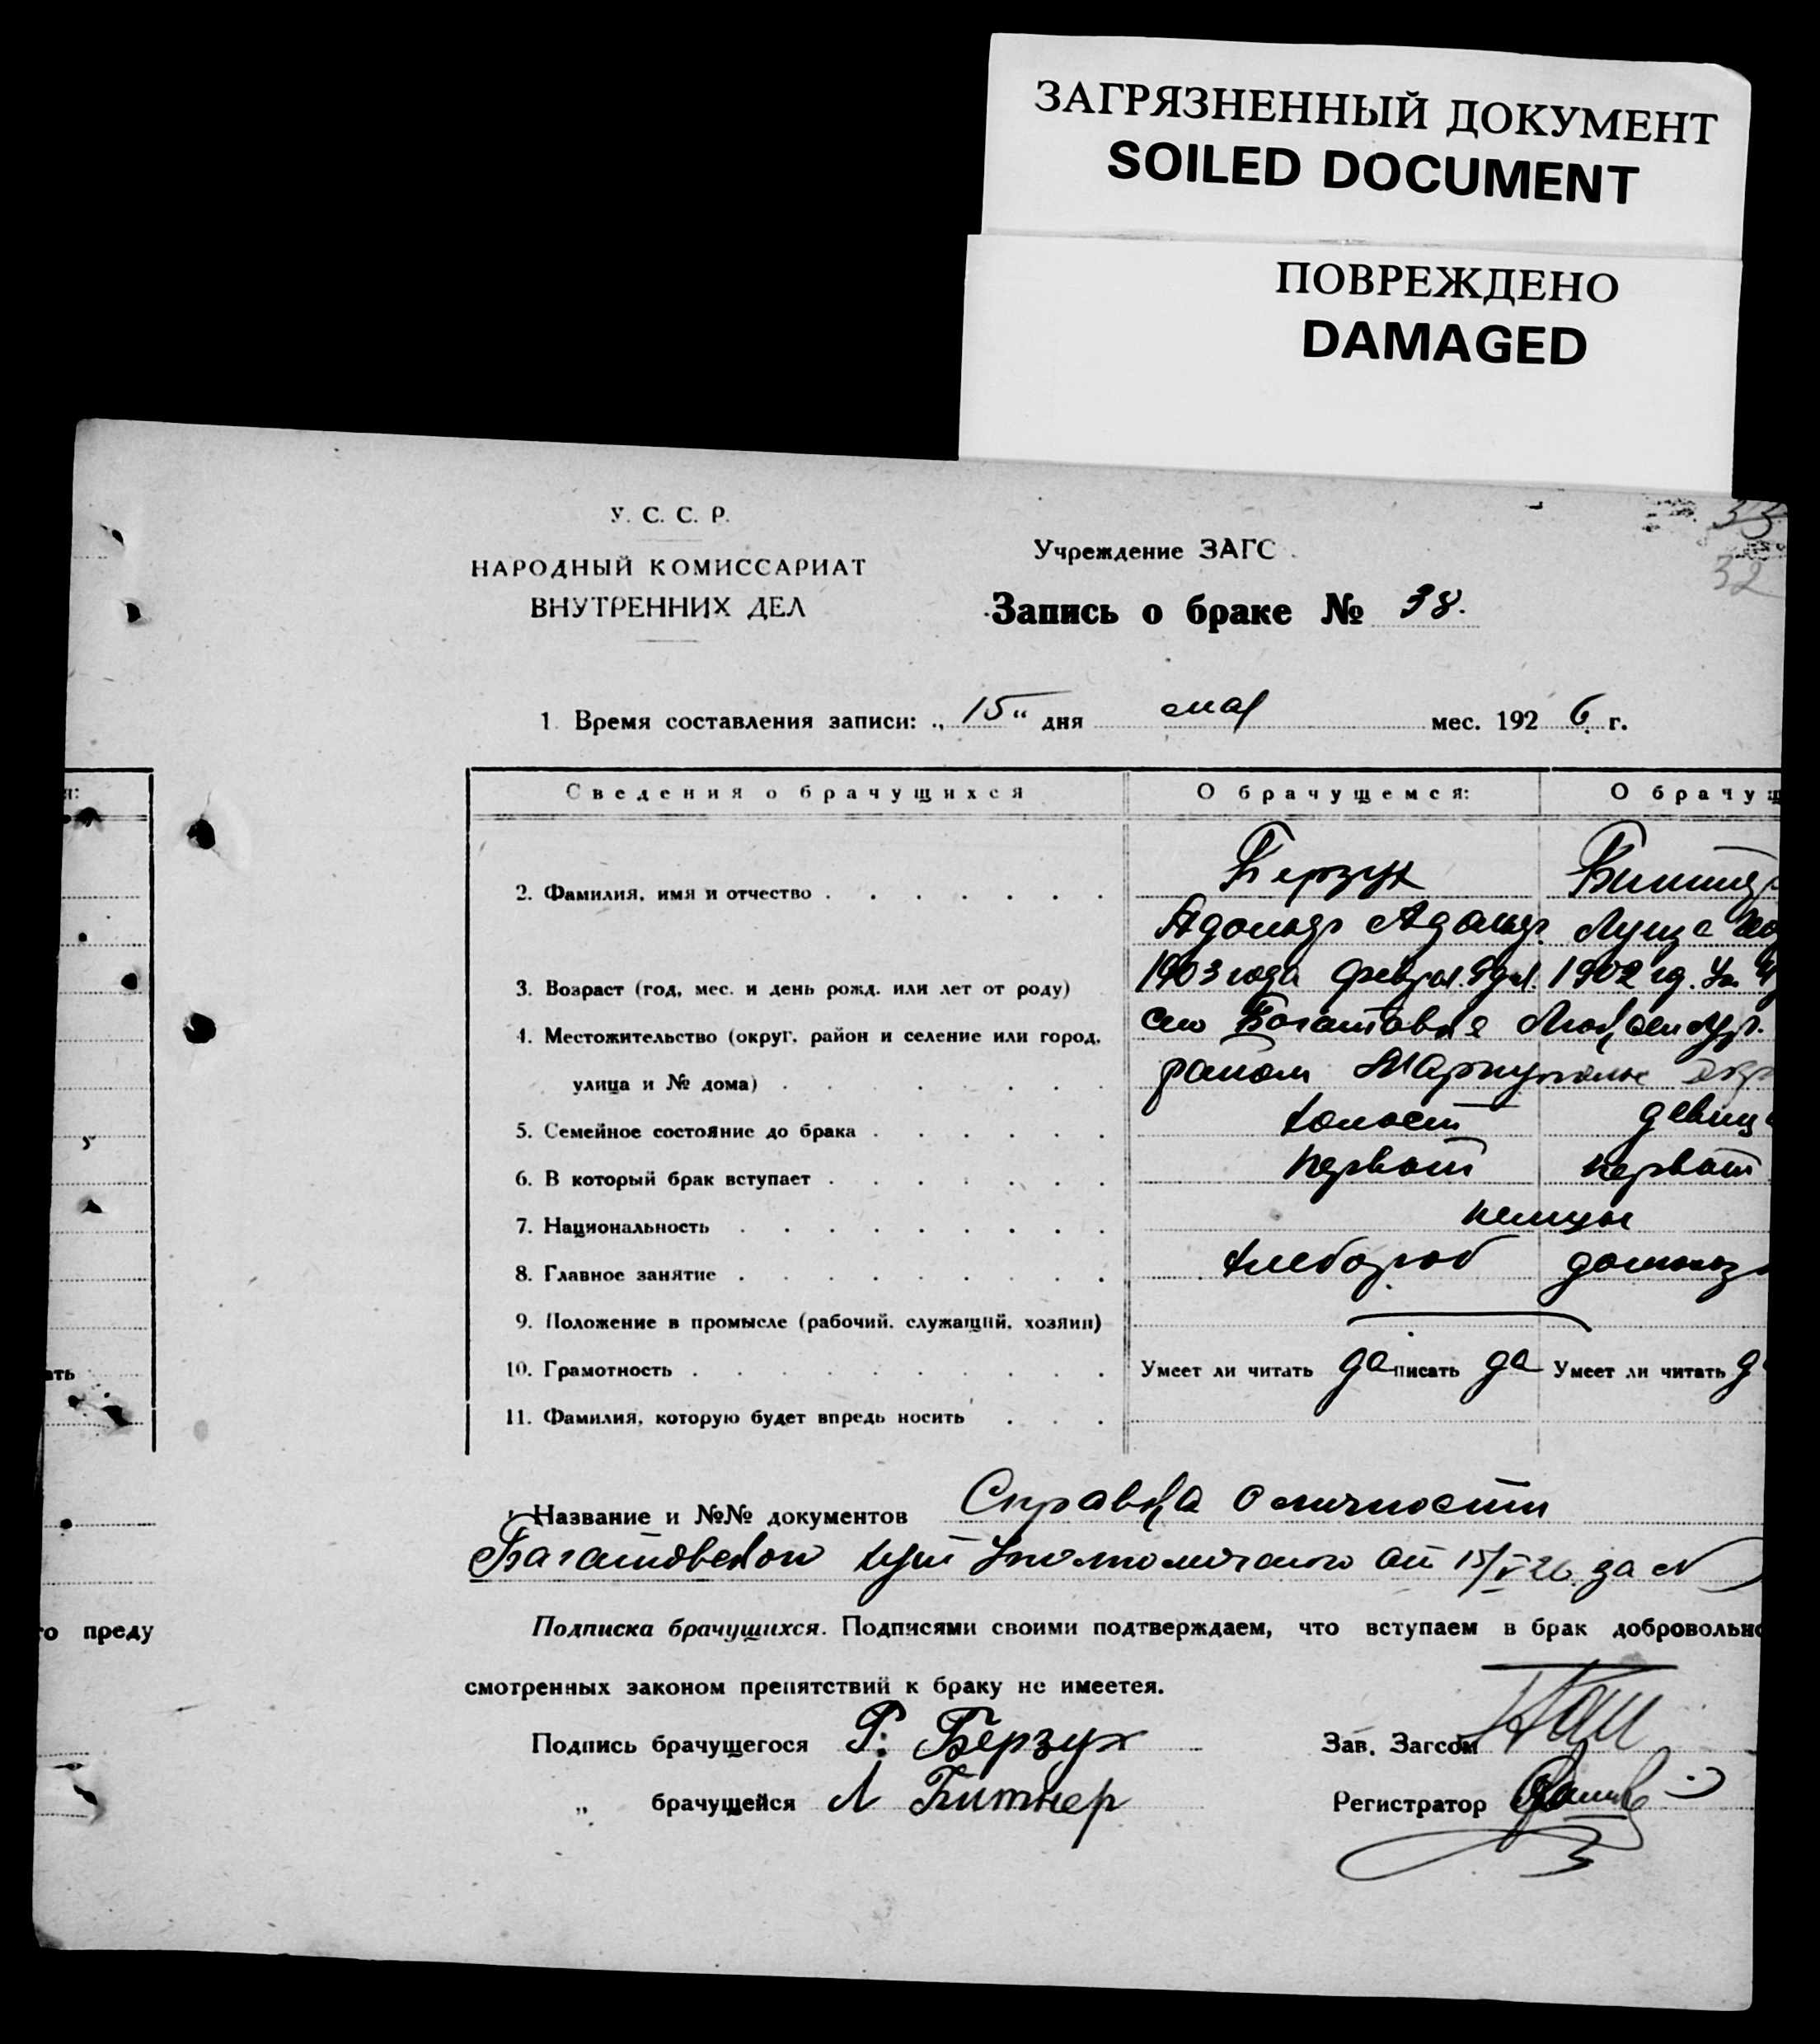 ЗАГРЯЗНЕННЫЙ ДОКУМЕНТ
SOILED DOCUMENT
ПОВРЕЖДЕНО
DAMAGED
33
32
У. С. С. Р.
НАРОДНЫЙ КОМИССАРИАТ
ВНУТРЕННИХ ДЕЛ
Учреждение ЗАГС
Запись о браке № 38.
1. Время составления записи: „ 15 " дня мая мес. 192 6 г.
я:
Сведения о брачущихся О брачущемся: О брачущ
2. Фамилия, имя и отчество . . . . . . . Берзух
Адольф Адольф.
3. Возраст (год, мес. и день рожд. или лет от роду) 1903 года феврал. 9 дня. 1902 г.
4. Местожительство (округ, район и селение или город, село
улица и № дома) . . . . . . . . район Мариупольс
5. Семейное состояние до брака . . . . . . холост девиц
6. В который брак вступает . . . . . . . первый первый
7. Национальность . . . . . . . . . немцы
8. Главное занятие . . . . . . . . . хлебороб домохоз
9. Положение в промысле (рабочий, служащий, хозяин)
10. Грамотность . . . . . . . . . . Умеет ли читать да писать да Умеет ли читать д
ать
11. Фамилия, которую будет впредь носить . . .
Название и №№ документов Справка о личности
от 15/V 26 за N
Подписка брачущихся. Подписями своими подтверждаем, что вступаем в брак добровольно
го преду
смотренных законом препятствий к браку не имеется.
Подпись брачущегося Р. Берзух Зав. Загсом
„ брачущейся Л Битнер Регистратор